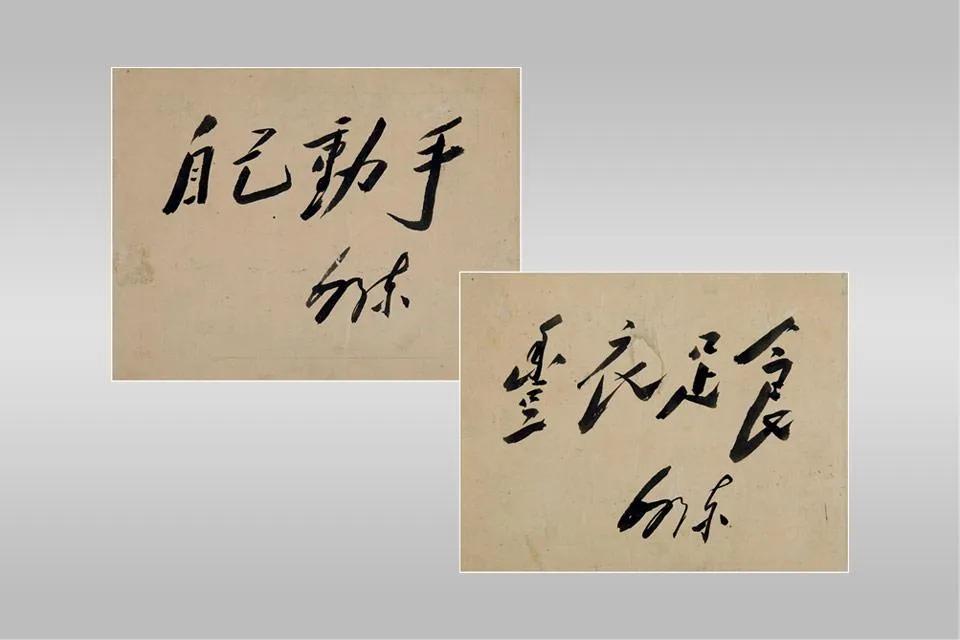 自己動手
泽东
豐衣足食
泽东